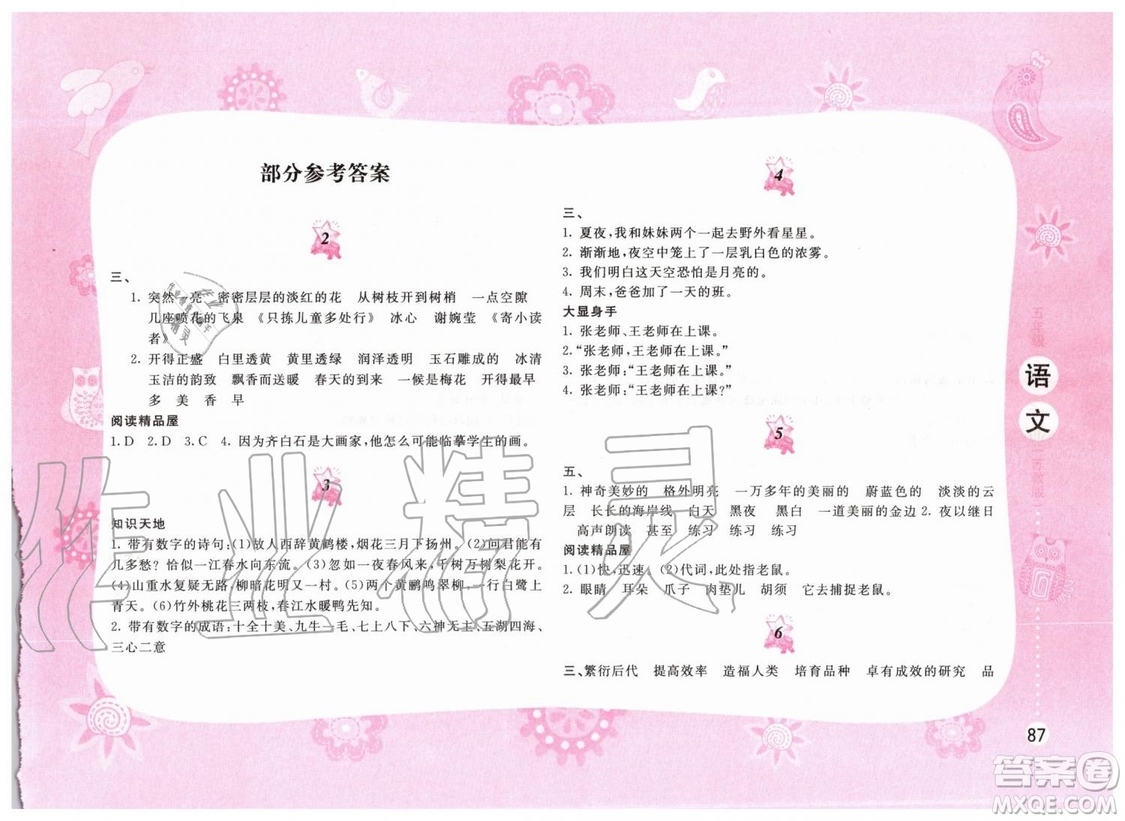 部分参考答案
2
三、
1. 突然一亮 密密层层的淡红的花 从树枝开到树梢 一点空隙
几座喷花的飞泉 《只拣儿童多处行》 冰心 谢婉莹 《寄小读
者》
2. 开得正盛 白里透黄 黄里透绿 润泽透明 玉石雕成的 冰清
玉洁的韵致 飘香而送暖 春天的到来 他一定是梅花 开得最早
多 美 香 早
阅读精品屋
1. D 2. D 3. C 4. 因为齐白石是大画家,他怎么可能临摹学生的画。
3
知识天地
1. 带有数字的诗句:(1)故人西辞黄鹤楼,烟花三月下扬州。(2)问君能有
几多愁? 恰似一江春水向东流。(3)忽如一夜春风来,千树万树梨花开。
(4)山重水复疑无路,柳暗花明又一村。(5)两个黄鹂鸣翠柳,一行白鹭上
青天。(6)竹外桃花三两枝,春江水暖鸭先知。
2. 带有数字的成语:十全十美、九牛一毛、七上八下、六神无主、五湖四海、
三心二意
4
三、
1. 夏夜,我和妹妹两个一起去野外看星星。
2. 渐渐地,夜空中笼上了一层乳白色的浓雾。
3. 我们明白这天空恐怕是月亮的。
4. 周末,爸爸加了一天的班。
大显身手
1. 张老师、王老师在上课。
2.“张老师,王老师在上课。”
3. 张老师:“王老师在上课。”
4. 张老师:“王老师在上课?”
5
五、
1. 神奇美妙的 格外明亮 一万多年的美丽的 蔚蓝色的 淡淡的云
层 长长的海岸线 白天 黑夜 黑白 一道美丽的金边 2. 夜以继日
高声朗读 甚至 练习 练习 练习
阅读精品屋
1. (1)快,迅速。(2)代词,此处指老鼠。
2. 眼睛 耳朵 爪子 肉垫儿 胡须 它去捕捉老鼠。
6
三、繁衍后代 提高效率 造福人类 培育品种 卓有成效的研究 品
五年级
语
文
87
作业精灵
答案圈
MXQE.COM